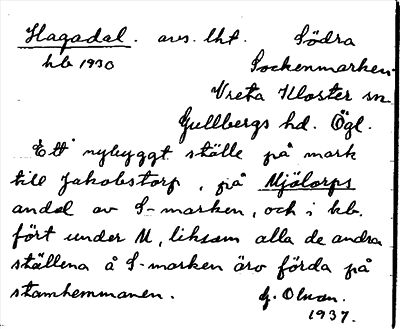 Hagadal. avs. lht. Södra
kb 1930 Sockenmarken
Vreta Kloster sn
Gullbergs hd. Ögl.
Ett nybyggt ställe på mark
till Jakobstorp, på Mjölorps
andel av S-marken, och i kb.
fört under M, liksom alla de andra
ställena å S-marken äro förda på
stamhemmanen. G. Olson.
1937.